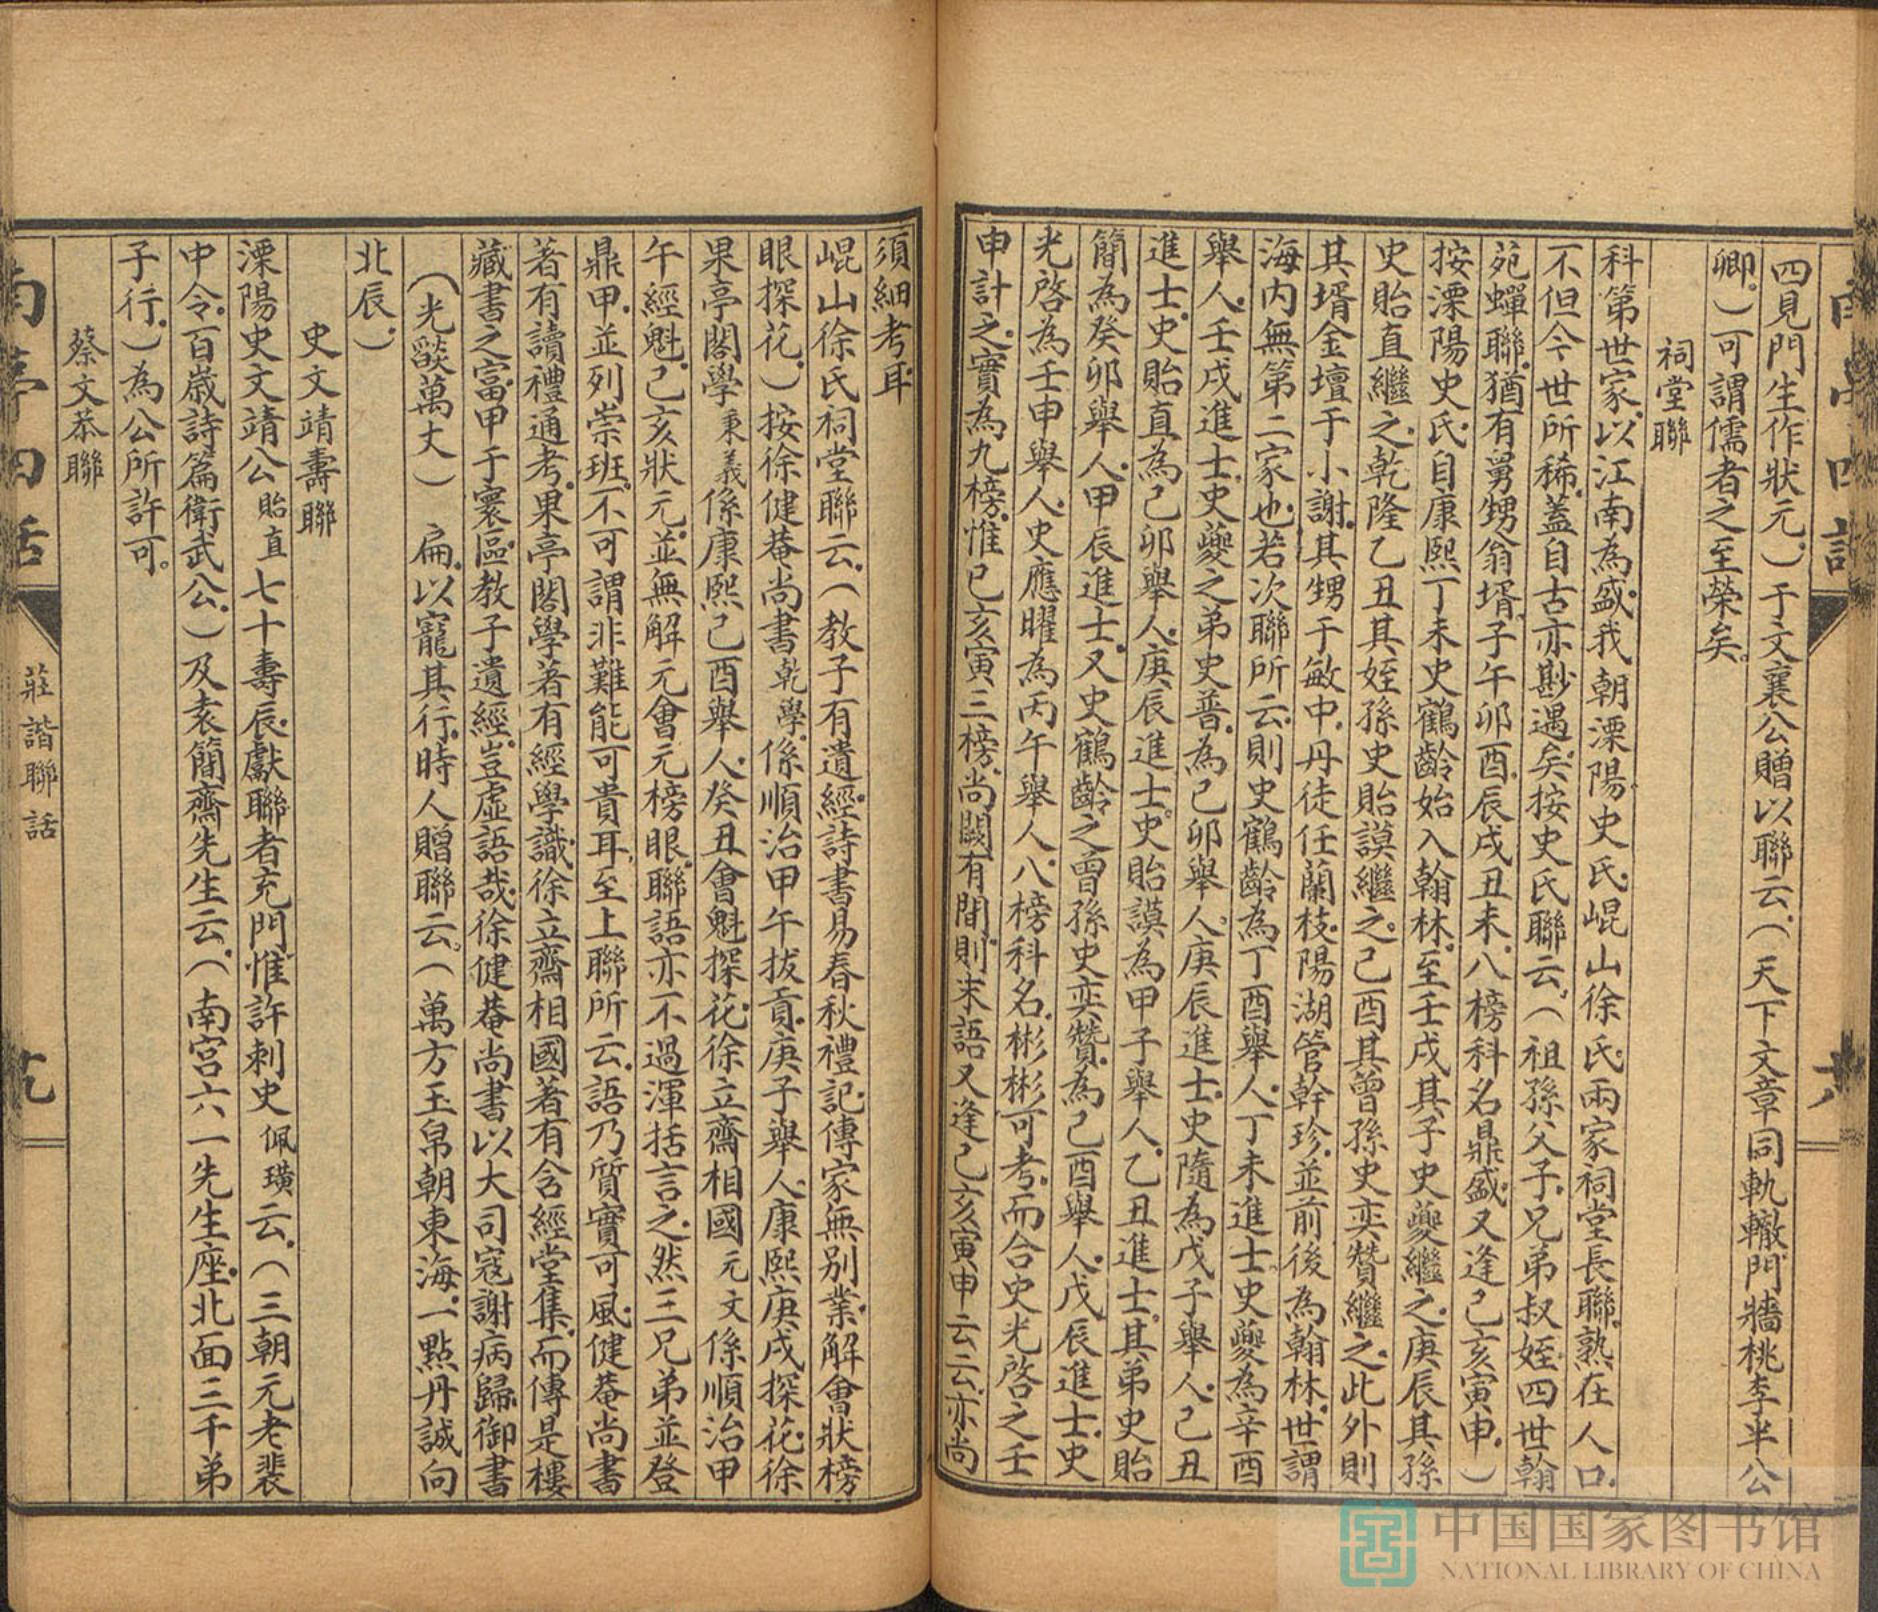 四見門生作狀元。）于文襄公贈以聯云。（天下文章同軌轍。門牆桃李半公
卿。）可謂儒者之至榮矣。
祠堂聯
科第世家。以江南為盛。我朝溧陽史氏。崐山徐氏。兩家祠堂長聯。熟在人口。
不但今世所稀。蓋自古亦尠遇矣。按史氏聯云。（祖孫父子。兄弟叔姪。四世翰
苑蟬聯。猶有舅甥翁壻。子午卯酉。辰戌丑未。八榜科名鼎盛。又逢己亥寅申。）
按溧陽史氏。自康熙丁未史鶴齡始入翰林。至壬戌其子史夔繼之。庚辰其孫
史貽直繼之。乾隆乙丑其姪孫史貽謨繼之。己酉其曾孫史奕贊繼之。此外則
其壻金壇于小謝。其甥于敏中。丹徒任蘭枝。陽湖管幹珍。並前後為翰林。世謂
海内無第二家也。若次聯所云。則史鶴齡為丁酉舉人。丁未進士。史夔為辛酉
舉人。壬戌進士。史夔之弟史普。為己卯舉人。庚辰進士。史隨為戊子舉人。己丑
進士。史貽直為己卯舉人。庚辰進士。史貽謨為甲子舉人。乙丑進士。其弟史貽
簡為癸卯舉人。甲辰進士。又史鶴齡之曾孫史奕贊。為己酉舉人。戊辰進士。史
光啓為壬申舉人。史應曜為丙午舉人。八榜科名。彬彬可考。而合史光啓之壬
申計之。實為九榜。惟已亥寅三榜。尚闕有間。則末語又逢己亥寅申云云。亦尚
須細考耳
崐山徐氏祠堂聯云。（教子有遺經。詩書易春秋禮記。傳家無别業。解會狀榜
眼探花。）按徐健菴尚書乾學。係順治甲午拔貢。庚子舉人。康熙庚戌探花。徐
果亭閣學秉義係康熙己酉舉人。癸丑會魁探花。徐立齋相國元文係順治甲
午經魁。己亥狀元。並無解元會元榜眼。聯語亦不過渾括言之。然三兄弟並登
鼎甲。並列崇班。不可謂非難能可貴耳。至上聯所云。語乃質實可風。健菴尚書
著有讀禮通考。果亭閣學著有經學識。徐立齋相國著有含經堂集。而傳是樓
藏書之富。甲于寰區。教子遺經。豈虛語哉。徐健菴尚書以大司寇謝病歸。御書
（光燄萬丈）扁。以寵其行。時人贈聯云。（萬方玉帛朝東海。一點丹誠向
北辰。）
史文靖壽聯
溧陽史文靖公貽直七十壽辰。獻聯者充門。惟許刺史佩璜云。（三朝元老裴
中令。百歲詩篇衛武公。）及袁簡齋先生云。（南宮六一先生座。北面三千弟
子行。）為公所許可。
蔡文恭聯
莊諧聯話
中国国家图书馆
NATIONAL LIBRARY OF CHINA